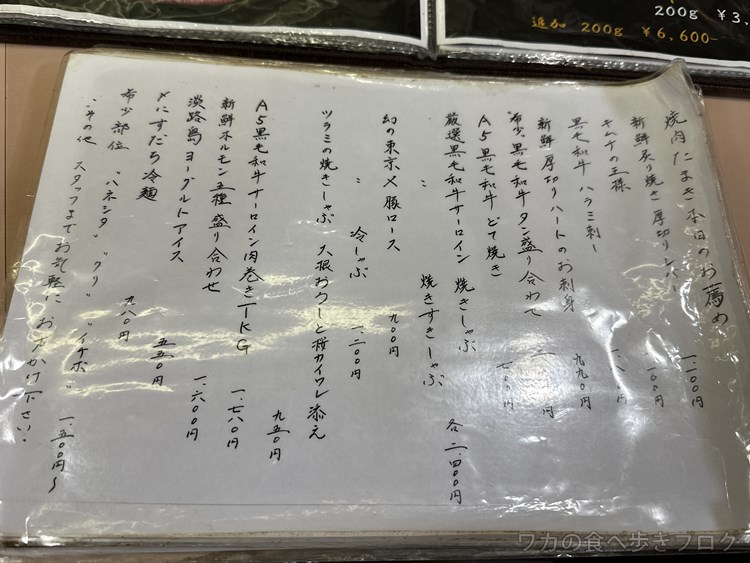 200g ¥3,
追加 200g ¥6,600-
焼肉たまき本日のお薦め
新鮮炙り焼き厚切りレバー 一、一〇〇円
キムチの王様 一〇〇円
黒毛和牛 ハラミ刺し
新鮮厚切りハートのお刺身 九九〇円
希少黒毛和牛タン盛り合わせ 円
A5黒毛和牛どて焼き 七〇〇円
厳選黒毛和牛サーロイン 焼きしゃぶ
〃 焼きすきしゃぶ 各二、四〇〇円
幻の東京X豚ロース 九〇〇円
〃 冷しゃぶ 一、二〇〇円
ツラミの焼きしゃぶ 大根おろしと桜カイワレ添え 九五〇円
A5黒毛和牛サーロイン肉巻きTKG 一、七八〇円
新鮮ホルモン五種盛り合わせ 一、六〇〇円
淡路島ヨーグルトアイス 五五〇円
〆にすだち冷麺 九八〇円
希少部位 "ハネシタ" "クリ" "イチボ" 一、五〇〇円〜
その他 スタッフまでお気軽にお声かけ下さい。
ワカの食べ歩きブログ